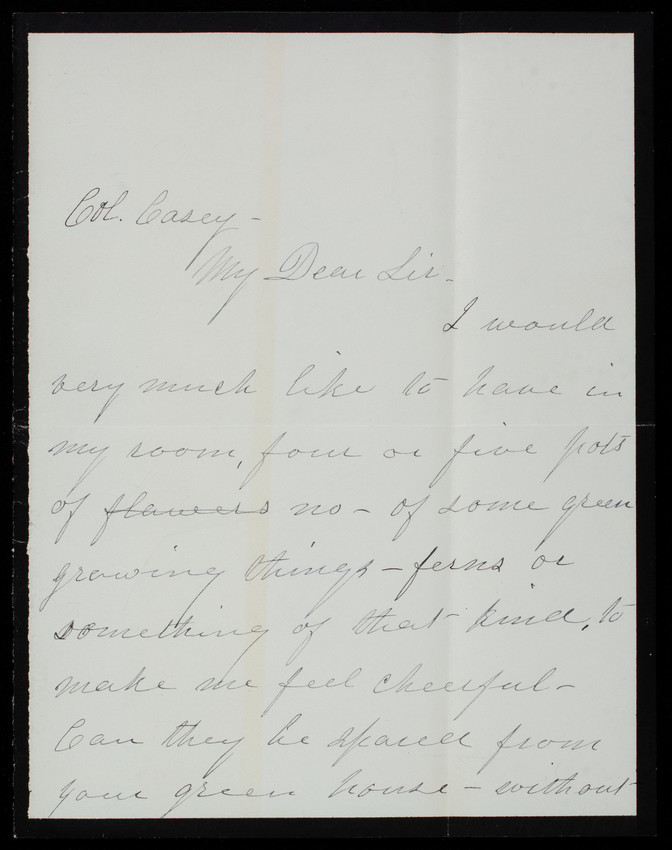 Col. Casey -
My Dear Sir -
I would
very much like to have in
my room, four or five pots
of flowers no - of some green
growing things - ferns or
something of that kind, to
make me feel cheerful -
Can they be spared from
your green house - without